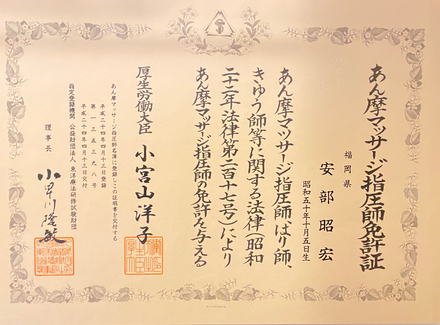 あん摩マッサージ指圧師免許証
福岡県
安部昭宏
昭和五十年十月五日生
あん摩マッサージ指圧師、はり師、
きゅう師等に関する法律(昭和
二十二年法律第二百十七号)により
あん摩マッサージ指圧師の免許を与える
厚生労働大臣 小宮山洋子
あん摩マッサージ指圧師名簿に登録しこの証明書を交付する
平成二十四年四月十三日登録
第一三五三九八号
平成二十四年四月十三日交付
指定登録機関 公益財団法人 東洋療法研修試験財団
理事長